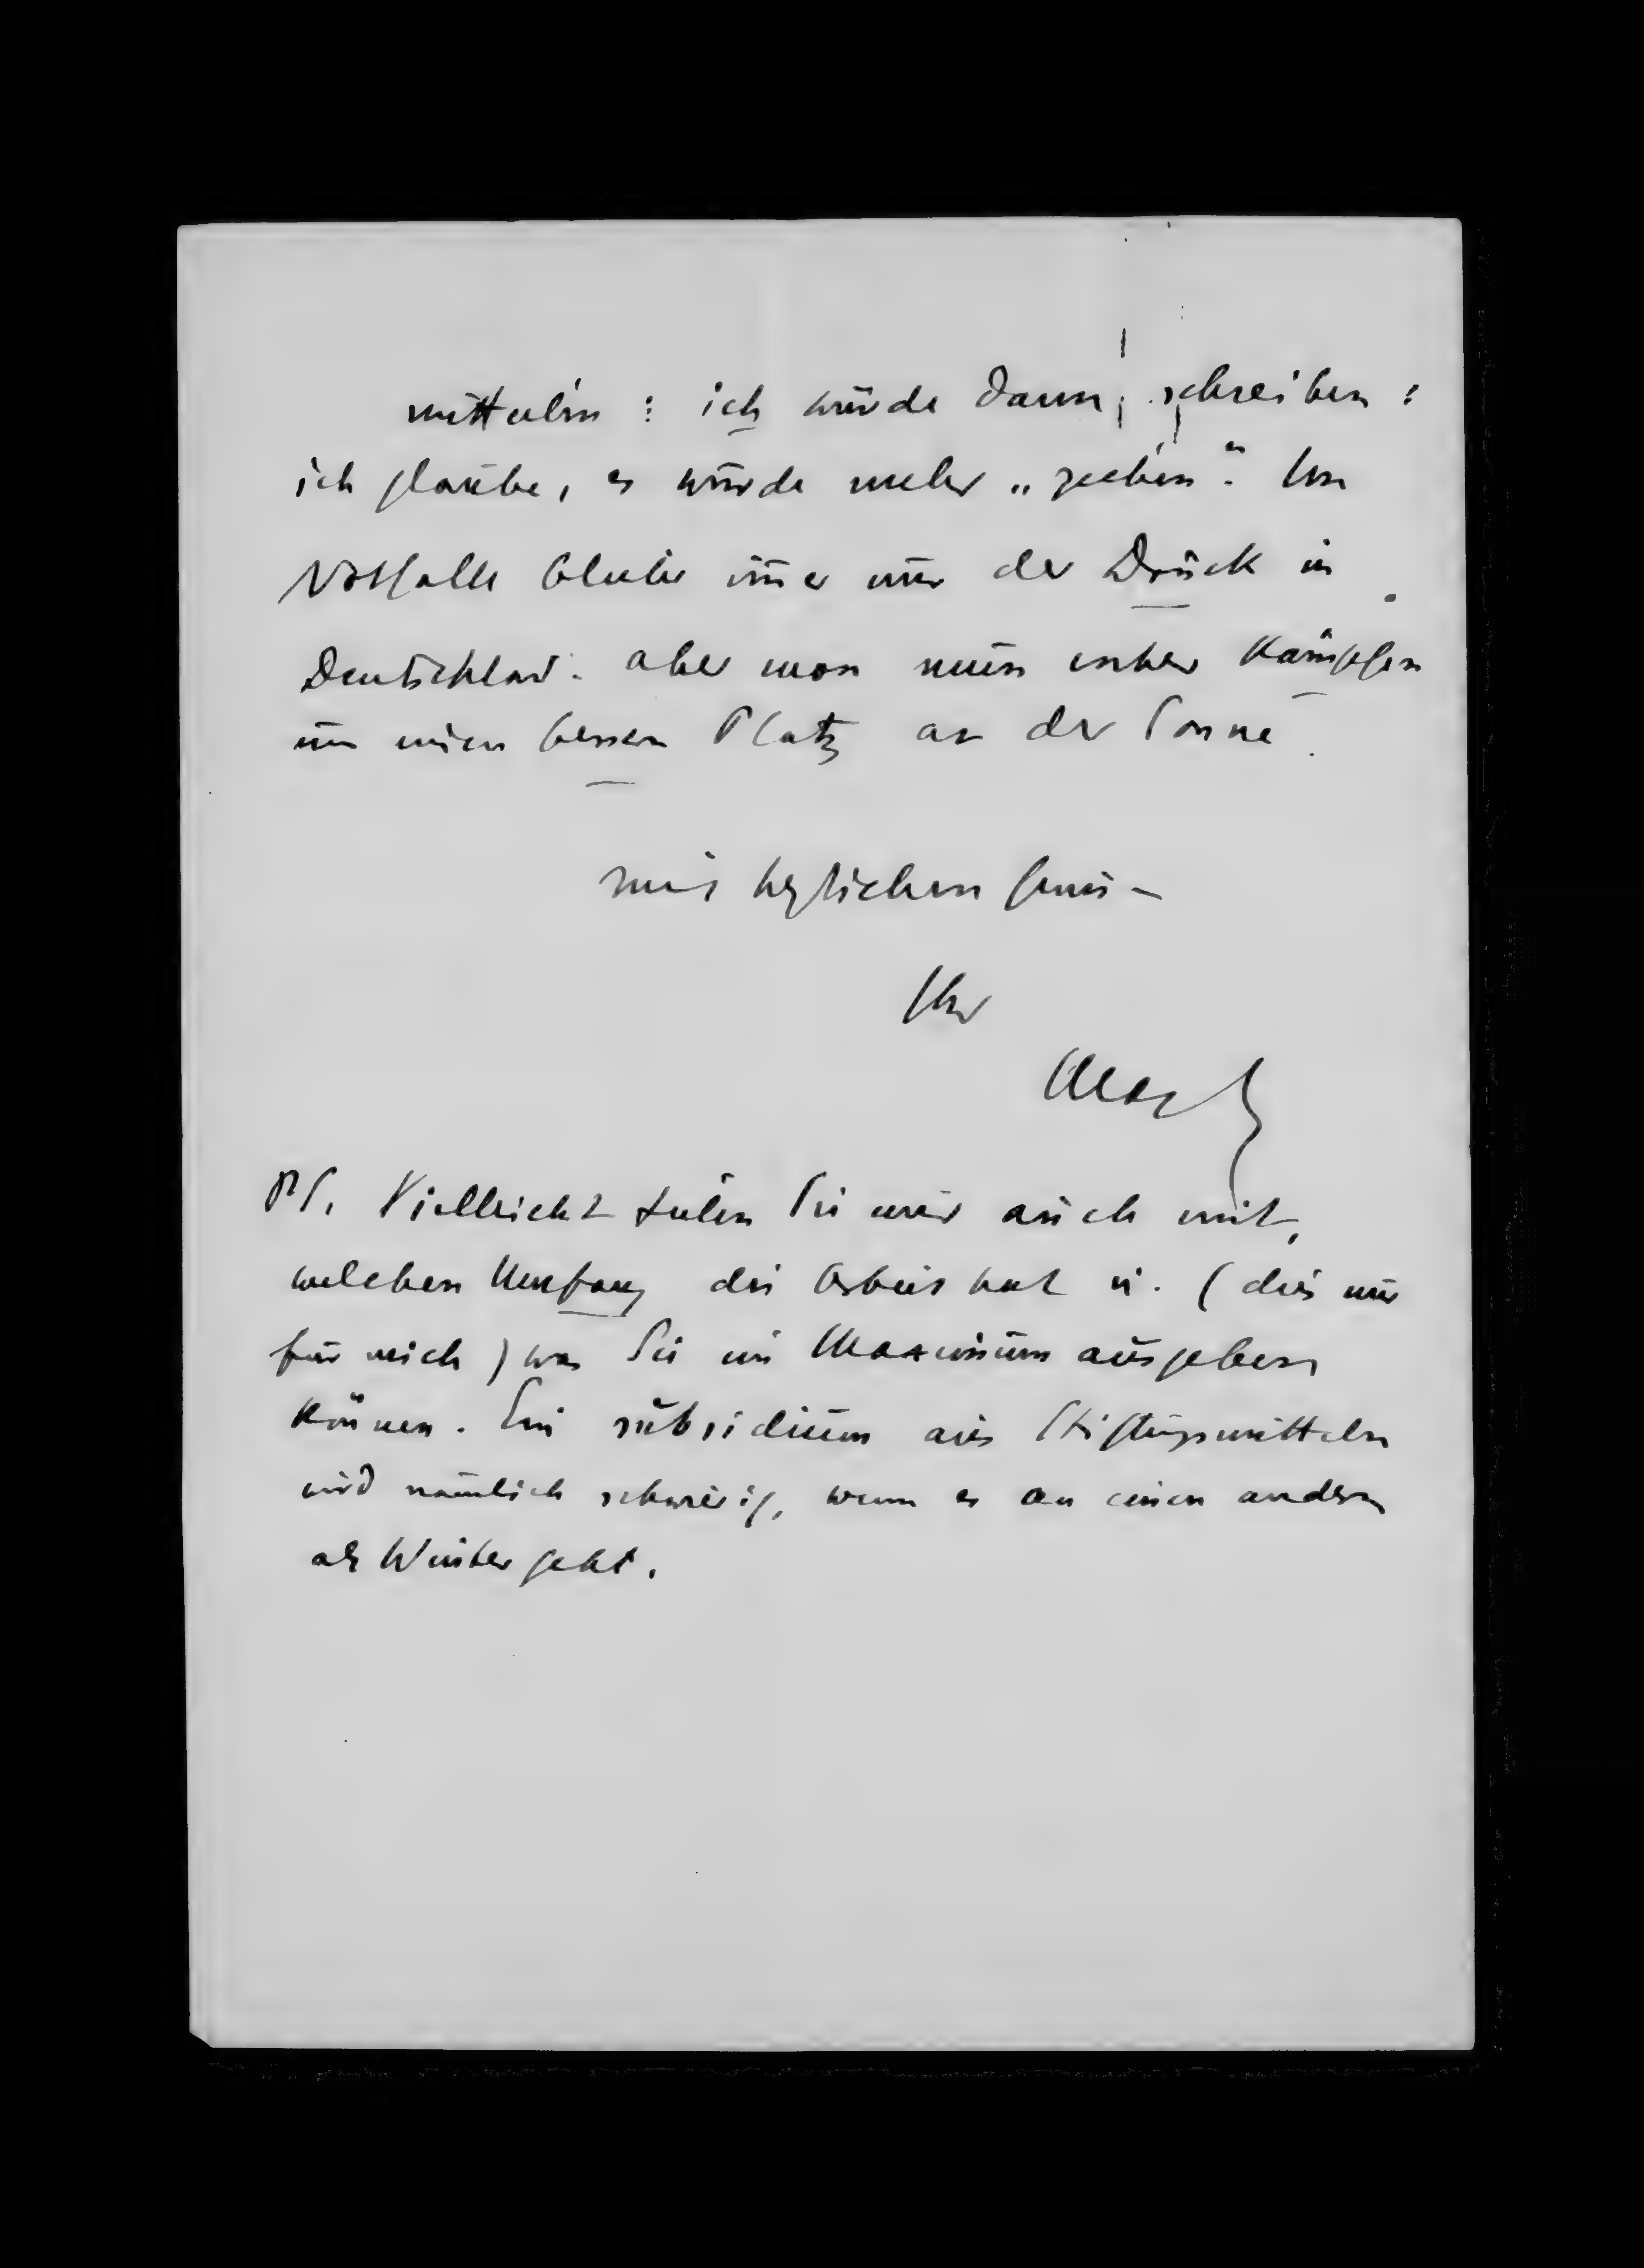 mitteilen: ich würde dann schreiben:
ich glaube, es würde mehr „ziehen“. Im
Notfalle bliebe immer nur der Druck in
Deutschland. aber man muss vorher kämpfen
um einen bessern Platz an der Sonne.
mit herzlichem Gruss –
Ihr
PS. Vielleicht teilen Sie mir auch mit,
welchen Umfang die Arbeit hat u. (dies nur
für mich) was Sie im Maximum ausgeben
können. Ein subsidium aus Stiftungsmitteln
wird nämlich schwierig, wenn es an einen andern
als Winter geht.